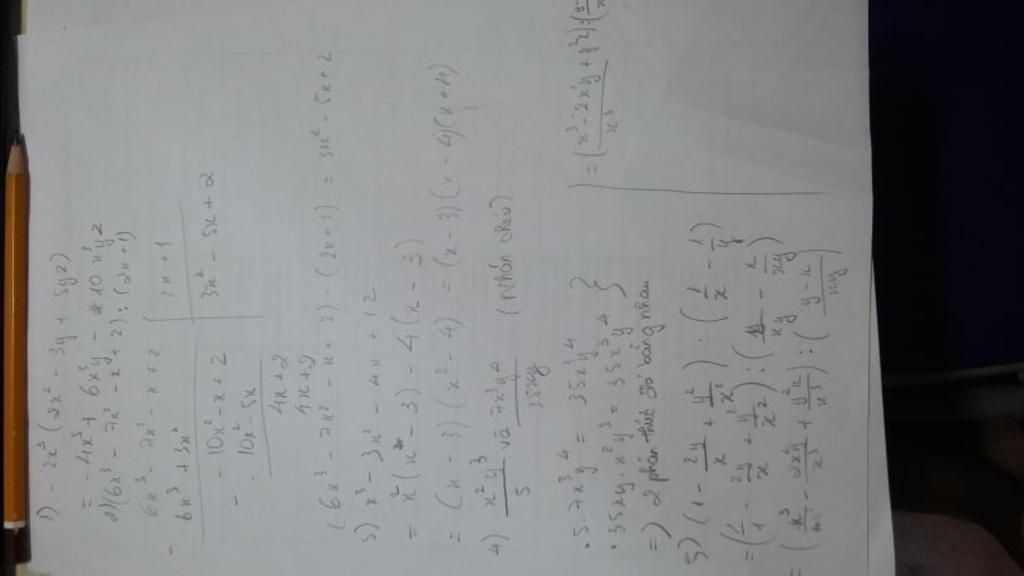 1) - 2x³ (2x² - 3y + 5yz)
= - 4x⁵ + 6x³y - 10x³yz
2) (6x³ - 7x² - x + 2) : (2x + 1)
6x³ - 7x² - x + 2 | 2x + 1
- 6x³ + 3x² | 3x² - 5x + 2
- 10x² - x + 2
- - 10x² - 5x
4x + 2
4x + 2
(6x³ - 7x² - x + 2) : (2x + 1) = 3x² - 5x + 2
3) x³ - 3x² - 4x + 12
= x² (x - 3) - 4 (x - 3)
= (x - 3) (x² - 4) = (x - 3) (x - 4) (x + 4)
4) x²y³/5 và 7x³y⁴/35xy (Nhân chéo)
• 5.7x³y⁴ = 35x³y⁴ }
• 35xy.x²y³ = 35x³y⁴ }
=) 2 phân thức đó bằng nhau
5) (1 - 2y/x + y²/x²) : (1/x - 1/y)
= (1/1 - 2y/x + y²/x²) : (y/xy - x/xy)
= (x³/x³ - 2x²y/x³ + y²x/x³) : (y - x/xy)
= (x³ - 2x²y + y²x/x³) :